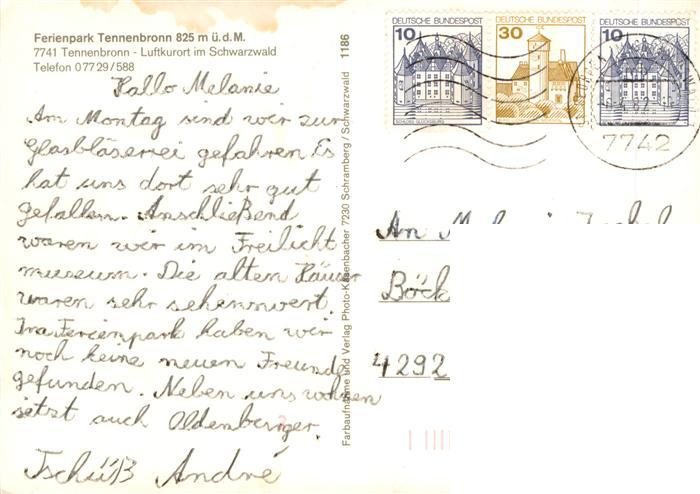 Ferienpark Tennenbronn 825 m ü.d.M.
7741 Tennenbronn - Luftkurort im Schwarzwald
Telefon 07729/588
Hallo Melanie
Am Montag sind wir zur
Glasbläserei gefahren Es
hat uns dort sehr gut
gefallen. Anschließend
waren wir im Freilicht
museum. Die alten Häuser
waren sehr sehenswert.
Im Ferienpark haben wir
noch keine neuen Freunde
gefunden. Neben uns wohnen
jetzt auch Oldenburger.
Tschüß André
Farbaufnahme und Verlag Photo-Kasenbacher 7230 Schramberg / Schwarzwald 1186
DEUTSCHE BUNDESPOST
10
SCHLOSS GLÜCKSBURG
DEUTSCHE BUNDESPOST
30
DEUTSCHE BUNDESPOST
10
7742
An
Böck
4292